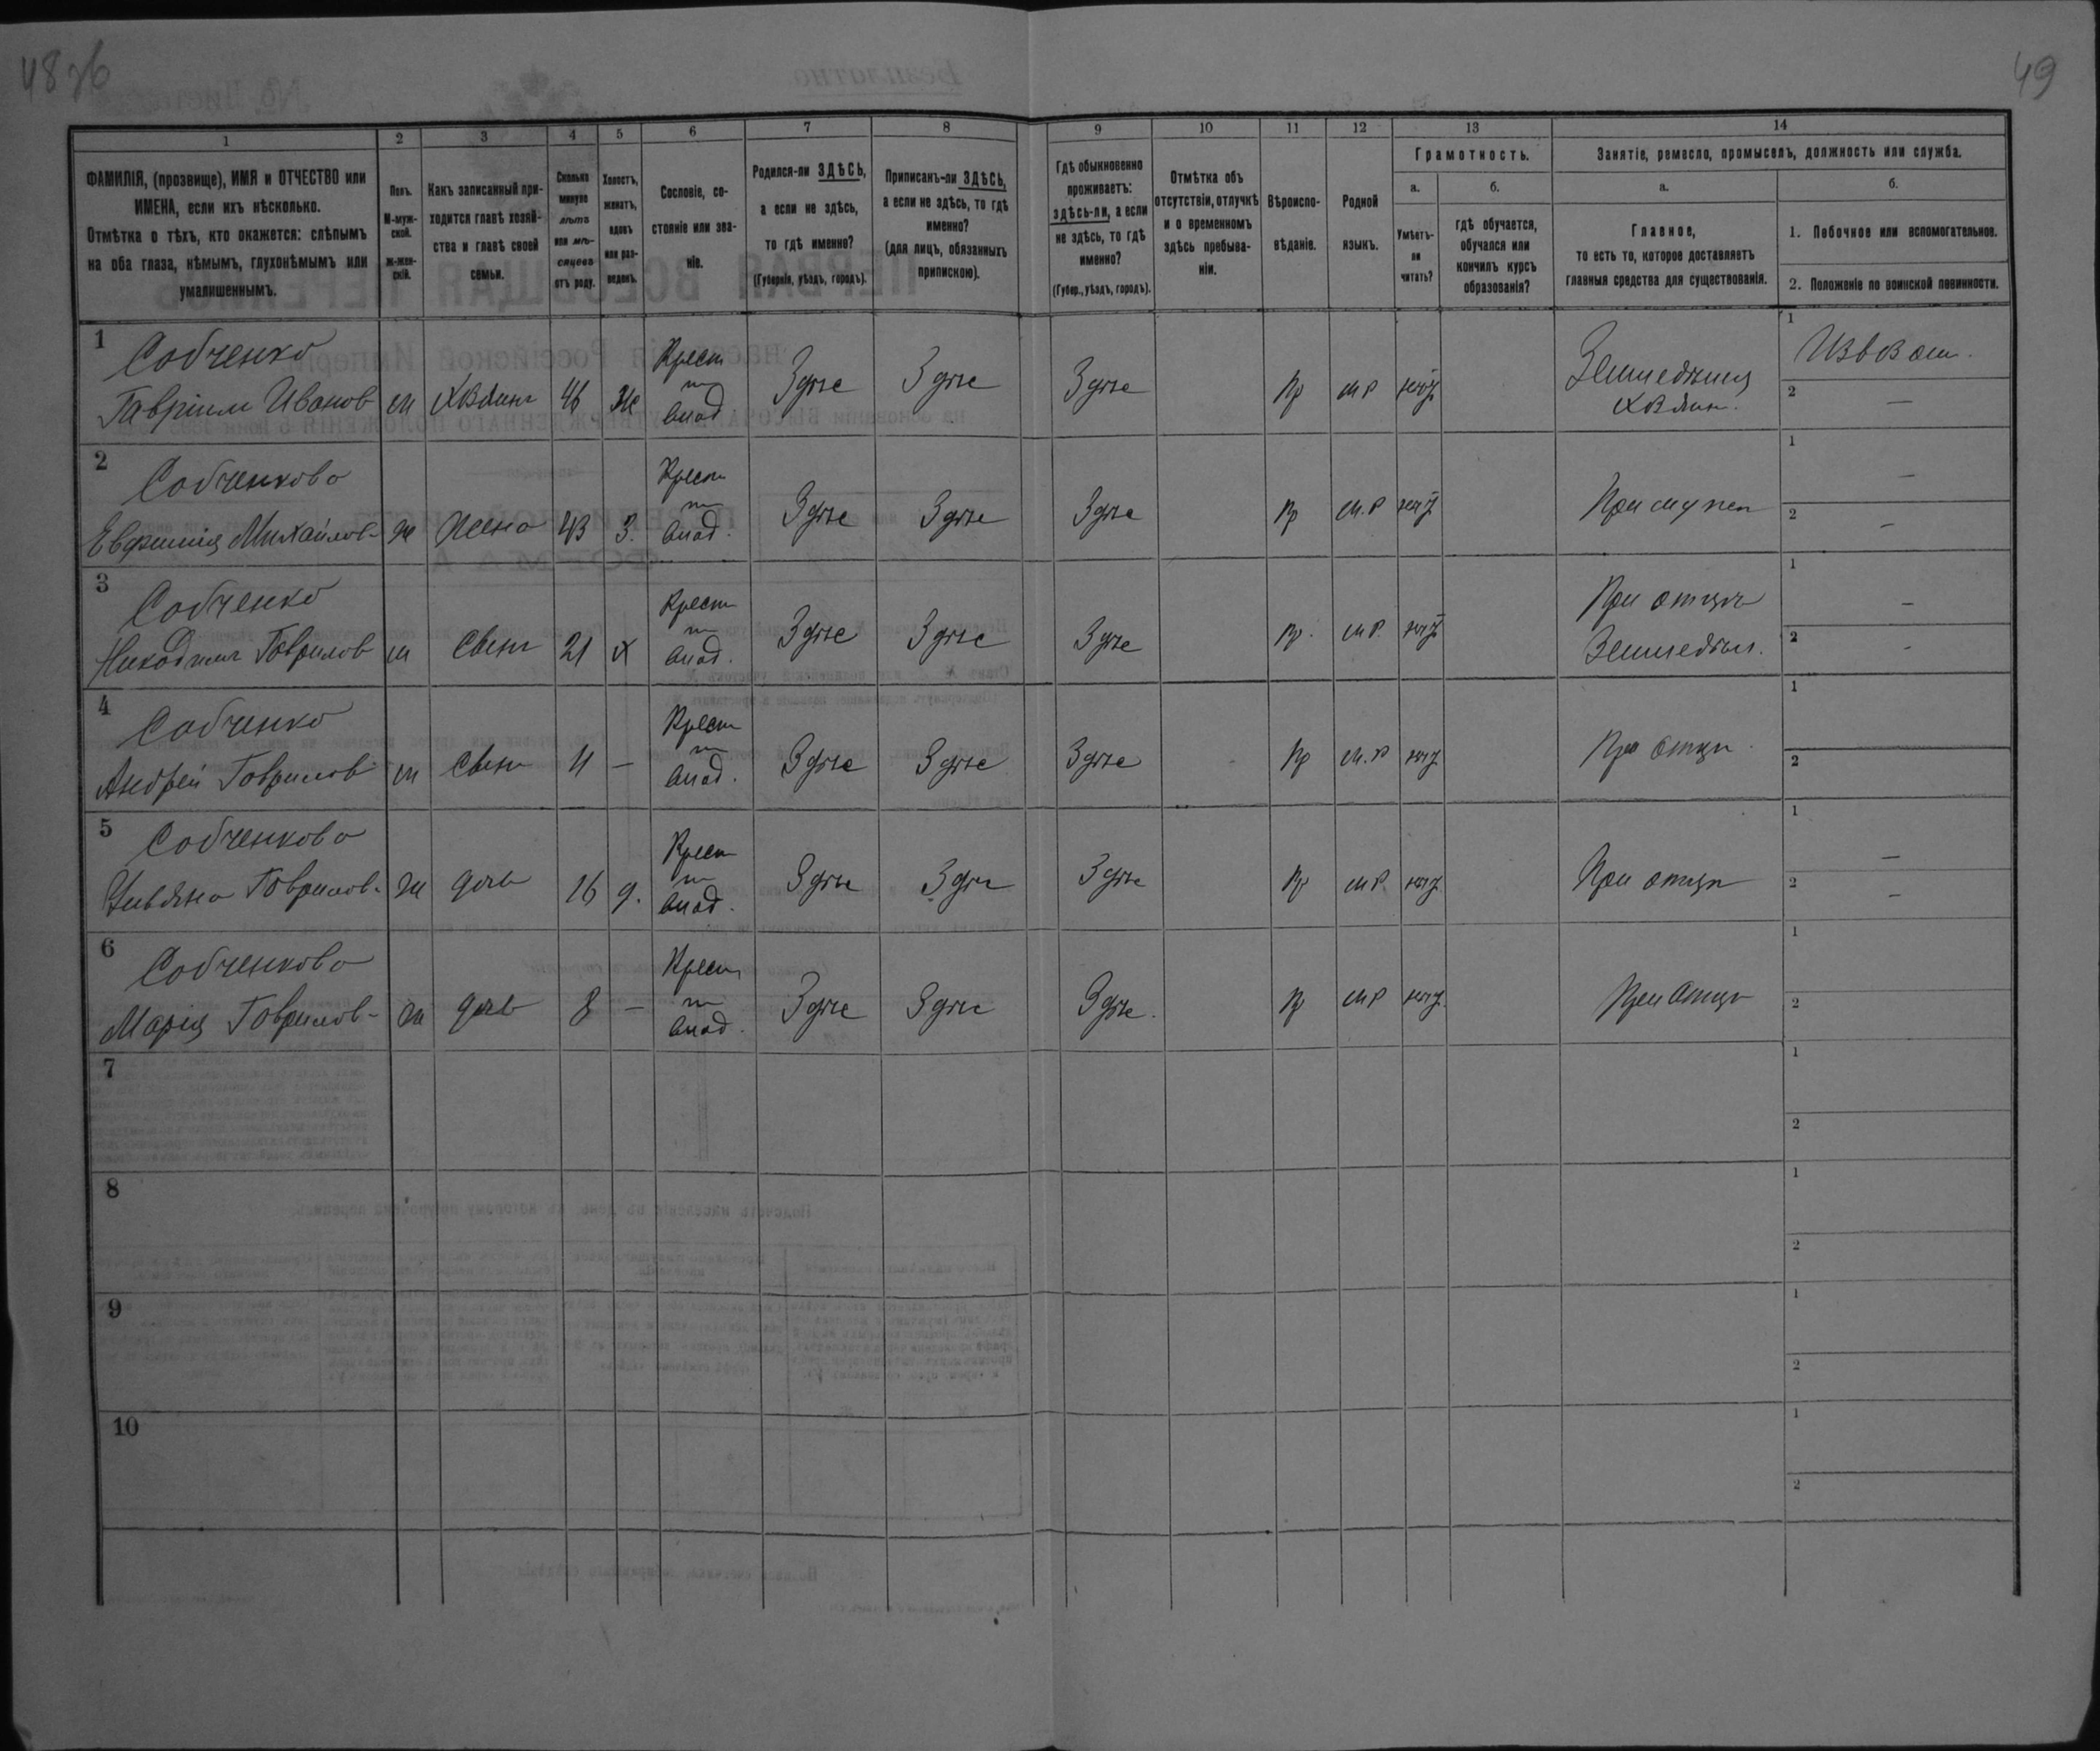 48 об
49
1
2
3
4
5
6
7
8
9
10
11
12
13
14
ФАМИЛІЯ, (прозвище), ИМЯ и ОТЧЕСТВО или
ИМЕНА, если ихъ нѣсколько.
Отмѣтка о тѣхъ, кто окажется: слѣпымъ
на оба глаза, нѣмымъ, глухонѣмымъ или
умалишеннымъ.
Полъ.
М-муж-
ской.
ж-жен-
скій.
Какъ записанный при-
ходится главѣ хозяй-
ства и главѣ своей
семьи.
Сколько
минуло
лѣтъ
или мѣ-
сяцевъ
отъ роду.
Холостъ,
женатъ,
вдовъ
или раз-
веденъ.
Сословіе, со-
стояніе или зва-
ніе.
Родился-ли ЗДѢСЬ,
а если не здѣсь,
то гдѣ именно?
(Губернія, уѣздъ, городъ).
Приписанъ-ли ЗДѢСЬ,
а если не здѣсь, то гдѣ
именно?
(для лицъ, обязанныхъ
припискою).
Гдѣ обыкновенно
проживаетъ:
здѣсь-ли, а если
не здѣсь, то гдѣ
именно?
(Губер., уѣздъ, городъ).
Отмѣтка объ
отсутствіи, отлучкѣ
и о временномъ
здѣсь пребыва-
ніи.
Вѣроиспо-
вѣданіе.
Родной
языкъ.
Грамотность.
а.
Умѣетъ-
ли
читать?
б.
гдѣ обучается,
обучался или
кончилъ курсъ
образованія?
Занятіе, ремесло, промыселъ, должность или служба.
а.
Главное,
то есть то, которое доставляетъ
главныя средства для существованія.
б.
1. Побочное или вспомогательное.
2. Положеніе по воинской повинности.
1
Собченко
Гавріилъ Иванов
м
46
Крест
Здѣсь
Здѣсь
Здѣсь
Пр
м р
1
2
—
2
Собченкова
Евфимія Михайлов-
ж
жена
43
З.
Крест
Здѣсь
Здѣсь
Здѣсь
Пр
м. р
При мужѣ
1
—
2
—
3
Собченко
Никодимъ Гаврилов
м
сынъ
21
х
Крест
Здѣсь
Здѣсь
Здѣсь
Пр.
м р.
При отцѣ
1
—
2
-
4
Собченко
Андрей Гаврилов
м
сынъ
11
—
Крест
Здѣсь
Здѣсь
Здѣсь
Пр
м. р
При отцѣ
1
2
5
Собченкова
Ульяна Гаврилов-
ж
дочь
16
д.
Крест
Здѣсь
Здѣсь
Здѣсь
Пр
м р.
При отцѣ
1
—
2
—
6
Собченкова
Марія Гаврилов-
ж
дочь
8
—
Крест
Здѣсь
Здѣсь
Здѣсь.
Пр
м р
При отцѣ
1
2
7
1
2
8
1
2
9
1
2
10
1
2